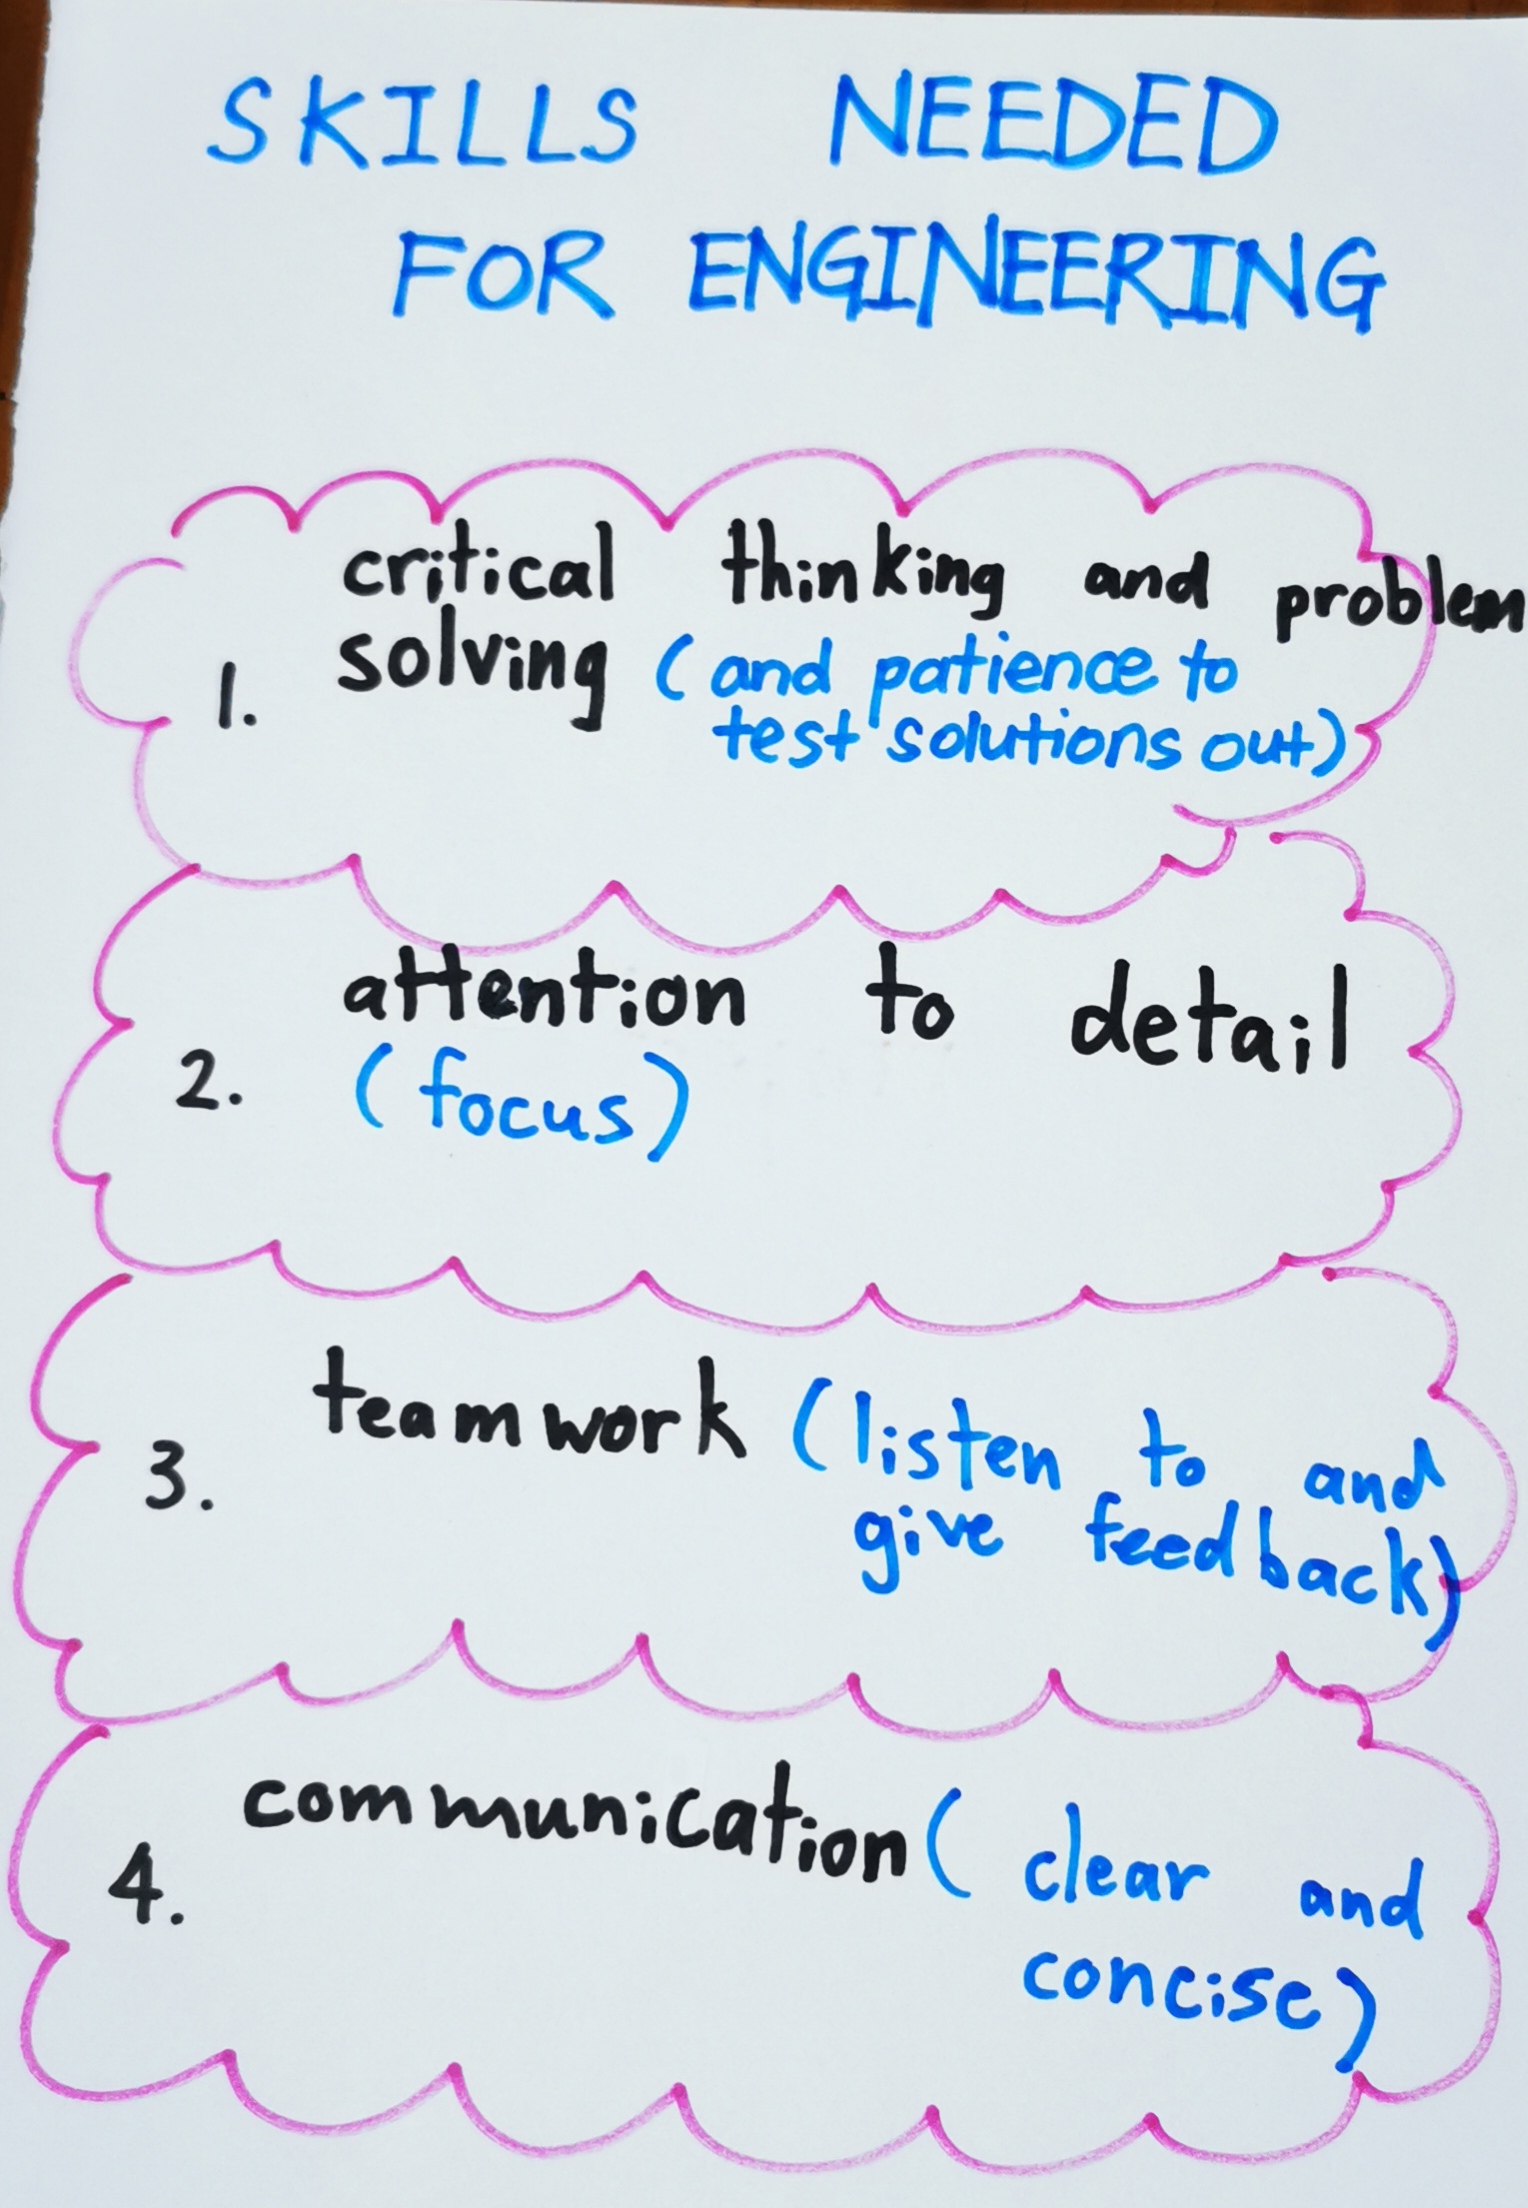 SKILLS NEEDED
FOR ENGINEERING
critical thinking and problem
1. solving (and patience to
test solutions out)
attention to detail
2. (focus)
teamwork (listen to and
3. give feedback)
communication (clear and
4. concise)